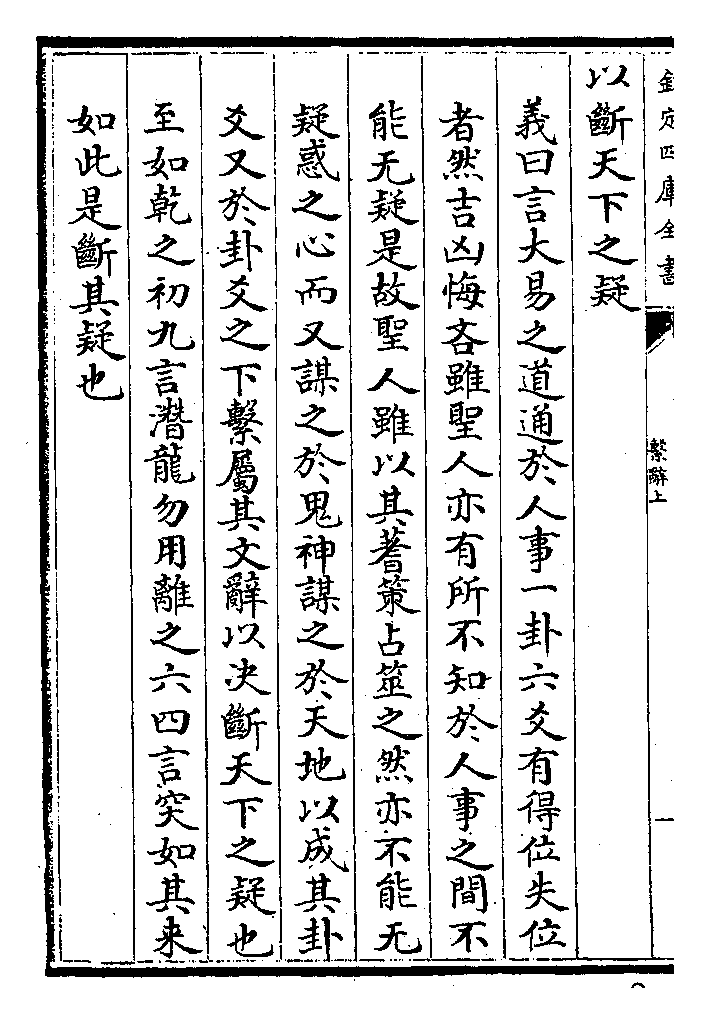 欽定四庫全書
繫辭上
一
以斷天下之疑
義曰言大易之道通於人事一卦六爻有得位失位
者然吉凶悔吝雖聖人亦有所不知於人事之間不
能无疑是故聖人雖以其蓍策占筮之然亦不能无
疑惑之心而又謀之於鬼神謀之於天地以成其卦
爻又於卦爻之下繫屬其文辭以决斷天下之疑也
至如乾之初九言潛龍勿用離之六四言突如其来
如此是斷其疑也